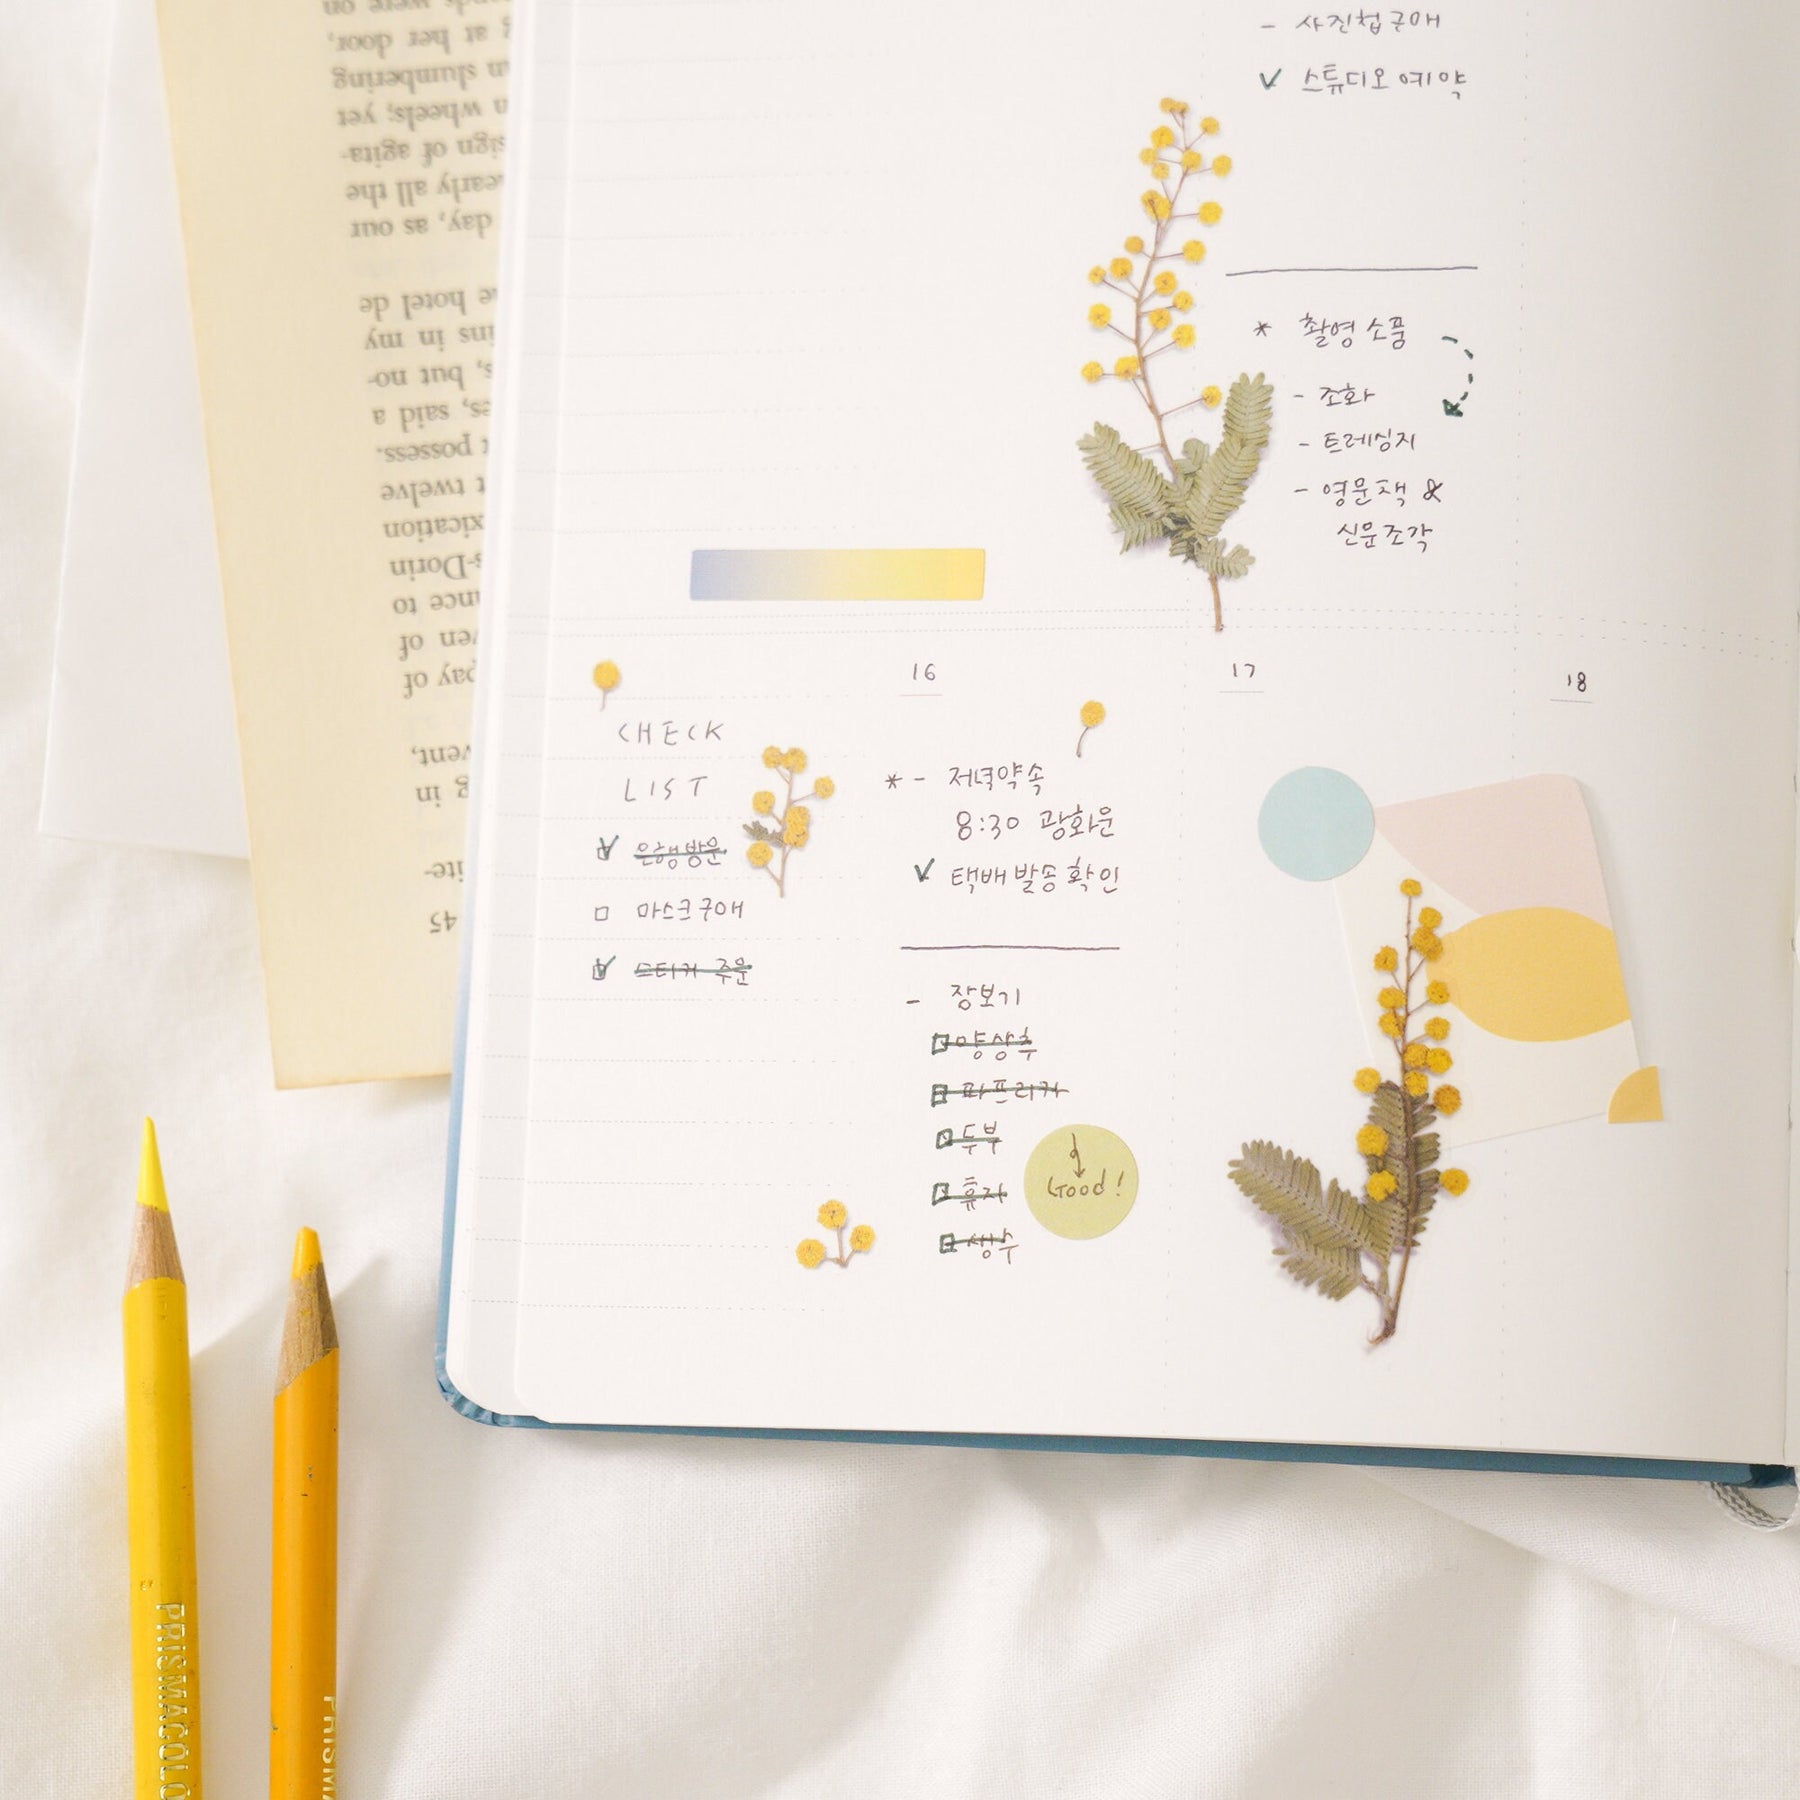 - 사진첩 구매
✓ 스튜디오 예약
* 촬영 소품
- 조화
- 트레싱지
- 영문책 &
신문조각
16
17
18
CHECK
LIST
은행 방문
마스크 구매
스티커 주문
* - 저녁약속
8:30 광화문
✓ 택배 발송 확인
- 장보기
양상추
파프리카
두부
휴지
생수
Good!
were on
at her door,
slumbering
wheels; yet
sign of agita-
all the
day, as our
hotel de
in my
but no-
said a
possess.
twelve
-Dorin
to
of
of
in
45
PRISMACOLO
PRISMA